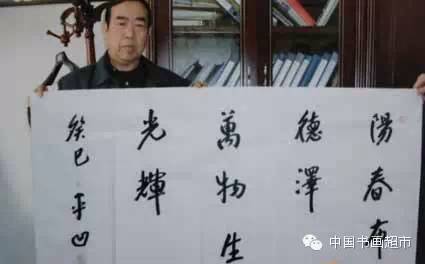 陽春布
德澤
萬物生
光輝
癸巳 平凹
中国书画超市